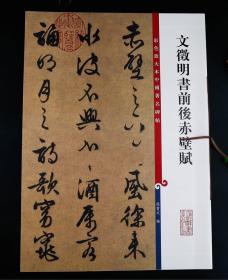 文徵明書前後赤壁賦
彩色放大本中國著名碑帖
孫寶文 編
赤壁之下風徐來
水波不興舉酒屬客
誦明月之詩歌窈窕